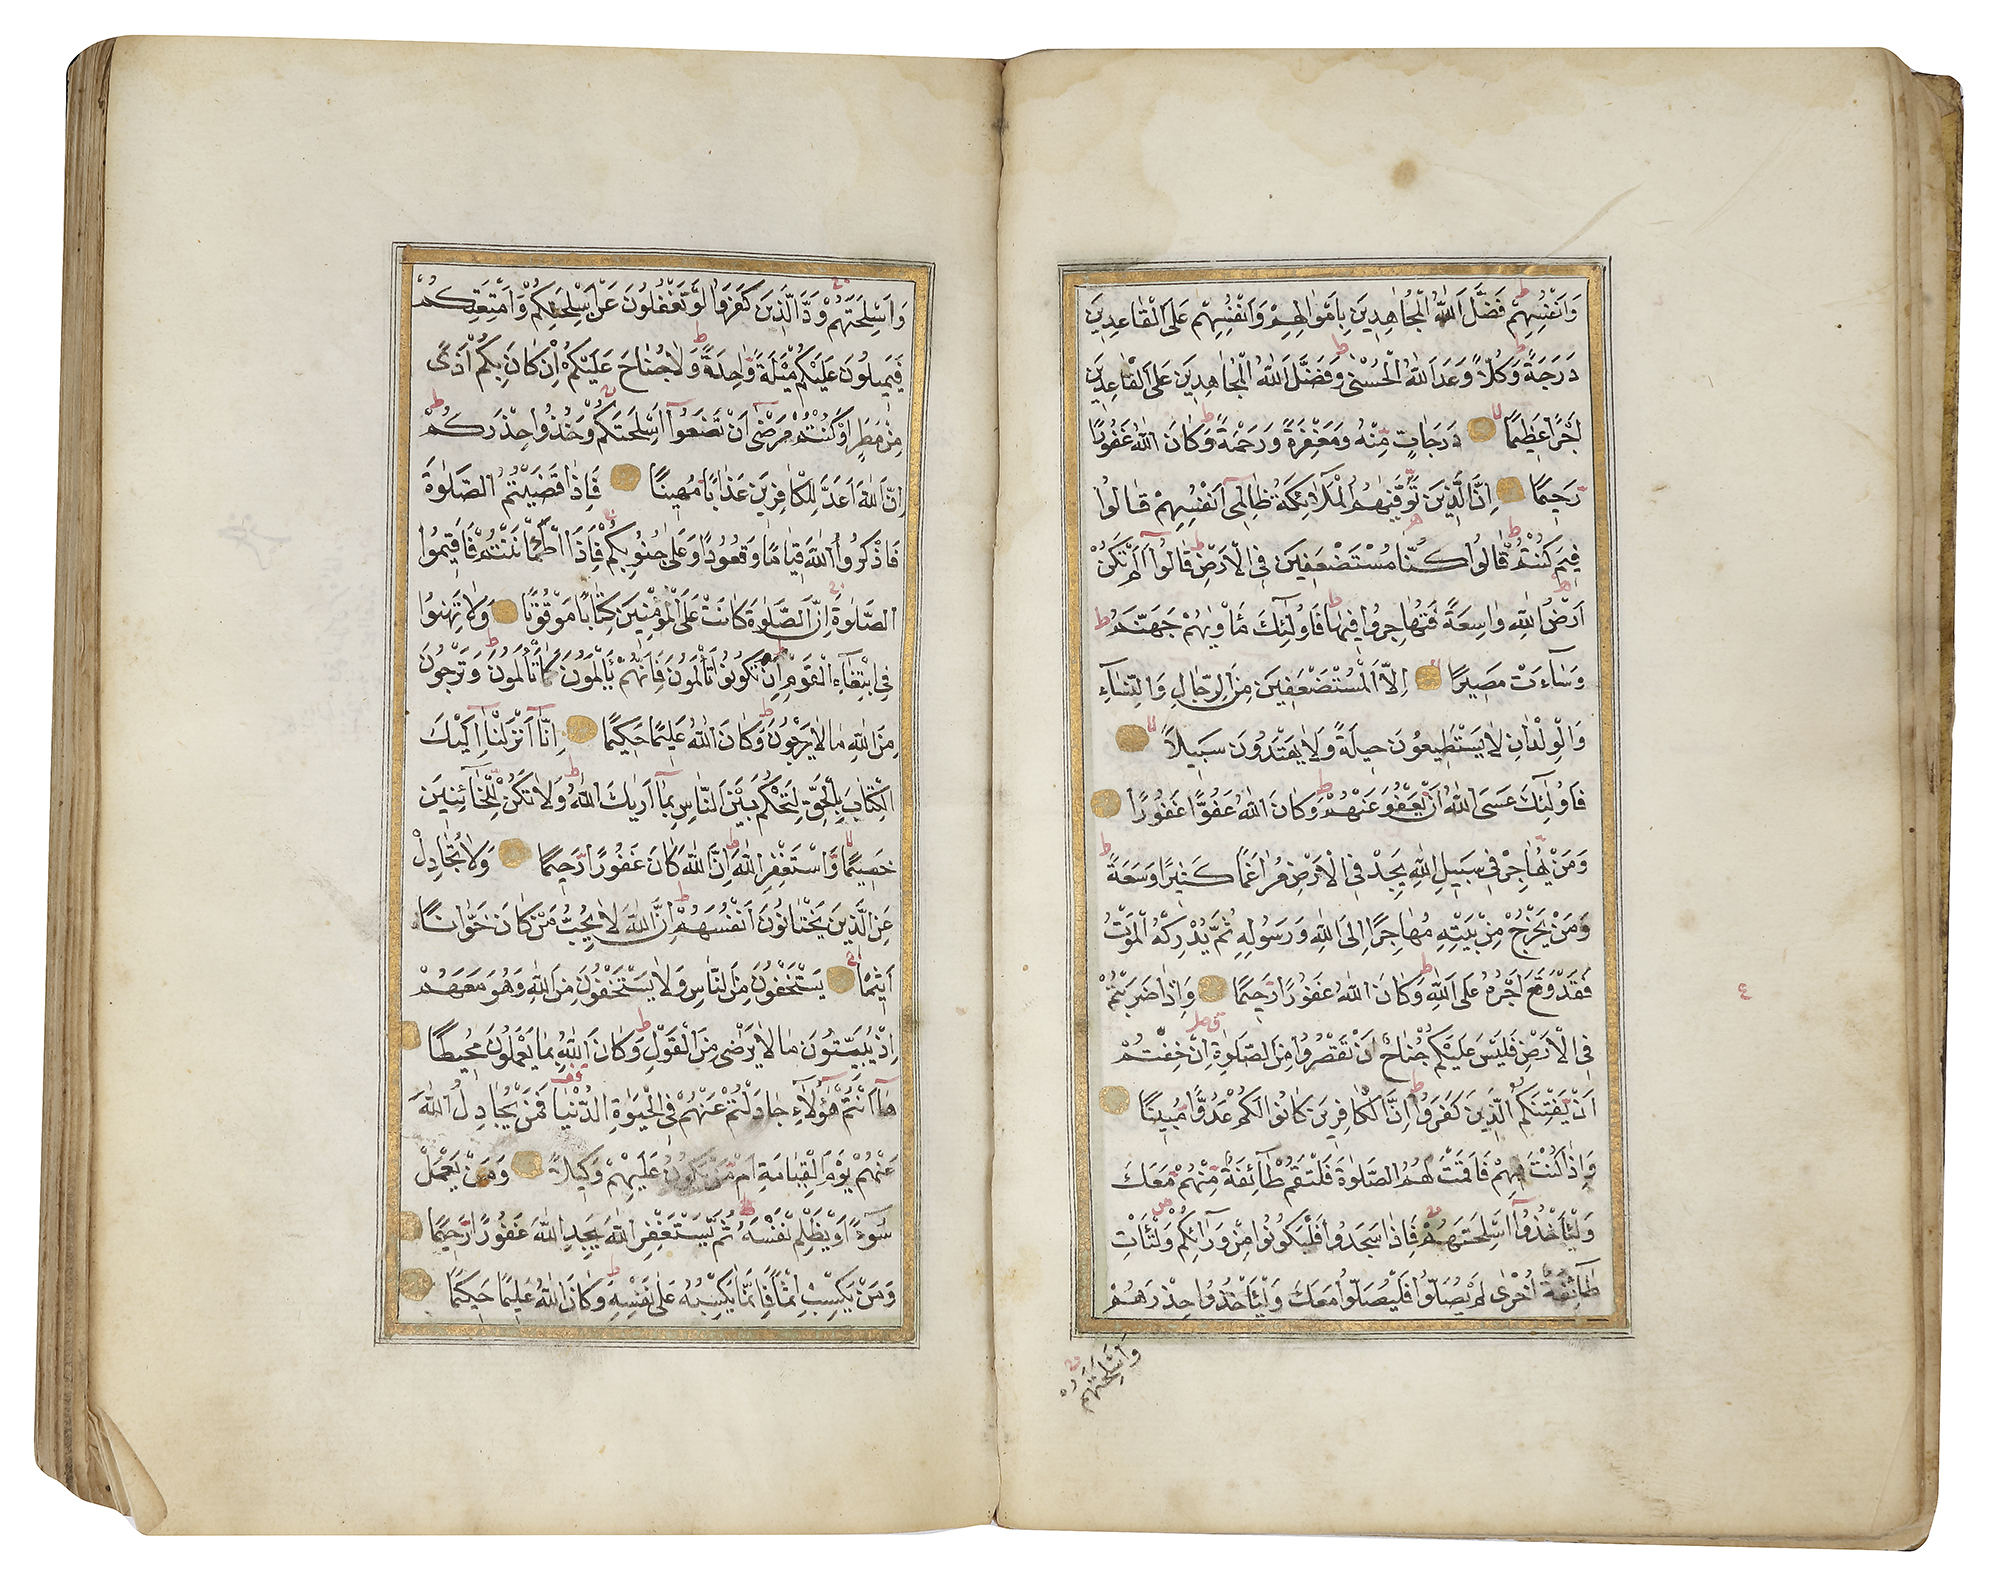 وَاَنْفُسِهِمْ فَضَّلَ اللّٰهُ الْمُجَاهِدِينَ بِاَمْوَالِهِمْ وَاَنْفُسِهِمْ عَلَى الْقَاعِدِينَ
دَرَجَةً وَكُلًّا وَعَدَ اللّٰهُ الْحُسْنٰى وَفَضَّلَ اللّٰهُ الْمُجَاهِدِينَ عَلَى الْقَاعِدِينَ
اَجْرًا عَظِيمًا دَرَجَاتٍ مِنْهُ وَمَغْفِرَةً وَرَحْمَةً وَكَانَ اللّٰهُ غَفُورًا
رَحِيمًا اِنَّ الَّذِينَ تَوَفّٰيهُمُ الْمَلٰٓئِكَةُ ظَالِمِٓى اَنْفُسِهِمْ قَالُوا
فِيمَ كُنْتُمْ قَالُوا كُنَّا مُسْتَضْعَفِينَ فِى الْاَرْضِ قَالُٓوا اَلَمْ تَكُنْ
اَرْضُ اللّٰهِ وَاسِعَةً فَتُهَاجِرُوا فِيهَا فَاُولٰٓئِكَ مَأْوٰيهُمْ جَهَنَّمُ
وَسَٓاءَتْ مَصِيرًا اِلَّا الْمُسْتَضْعَفِينَ مِنَ الرِّجَالِ وَالنِّسَٓاءِ
وَالْوِلْدَانِ لَا يَسْتَطِيعُونَ حِيلَةً وَلَا يَهْتَدُونَ سَبِيلًا
فَاُولٰٓئِكَ عَسَى اللّٰهُ اَنْ يَعْفُوَ عَنْهُمْ وَكَانَ اللّٰهُ عَفُوًّا غَفُورًا
وَمَنْ يُهَاجِرْ فِى سَبِيلِ اللّٰهِ يَجِدْ فِى الْاَرْضِ مُرَاغَمًا كَثِيرًا وَسَعَةً
وَمَنْ يَخْرُجْ مِنْ بَيْتِهِ مُهَاجِرًا اِلَى اللّٰهِ وَرَسُولِهِ ثُمَّ يُدْرِكْهُ الْمَوْتُ
فَقَدْ وَقَعَ اَجْرُهُ عَلَى اللّٰهِ وَكَانَ اللّٰهُ غَفُورًا رَحِيمًا وَاِذَا ضَرَبْتُمْ
فِى الْاَرْضِ فَلَيْسَ عَلَيْكُمْ جُنَاحٌ اَنْ تَقْصُرُوا مِنَ الصَّلٰوةِ اِنْ خِفْتُمْ
اَنْ يَفْتِنَكُمُ الَّذِينَ كَفَرُوا اِنَّ الْكَافِرِينَ كَانُوا لَكُمْ عَدُوًّا مُبِينًا
وَاِذَا كُنْتَ فِيهِمْ فَاَقَمْتَ لَهُمُ الصَّلٰوةَ فَلْتَقُمْ طَٓائِفَةٌ مِنْهُمْ مَعَكَ
وَلْيَأْخُذُٓوا اَسْلِحَتَهُمْ فَاِذَا سَجَدُوا فَلْيَكُونُوا مِنْ وَرَٓائِكُمْ وَلْتَأْتِ
طَٓائِفَةٌ اُخْرٰى لَمْ يُصَلُّوا فَلْيُصَلُّوا مَعَكَ وَلْيَأْخُذُوا حِذْرَهُمْ
وَاَسْلِحَتَهُمْ
٤
وَاَسْلِحَتَهُمْ وَدَّ الَّذِينَ كَفَرُوا لَوْ تَغْفُلُونَ عَنْ اَسْلِحَتِكُمْ وَاَمْتِعَتِكُمْ
فَيَمِيلُونَ عَلَيْكُمْ مَيْلَةً وَاحِدَةً وَلَا جُنَاحَ عَلَيْكُمْ اِنْ كَانَ بِكُمْ اَذًى
مِنْ مَطَرٍ اَوْ كُنْتُمْ مَرْضٰٓى اَنْ تَضَعُٓوا اَسْلِحَتَكُمْ وَخُذُوا حِذْرَكُمْ
اِنَّ اللّٰهَ اَعَدَّ لِلْكَافِرِينَ عَذَابًا مُهِينًا فَاِذَا قَضَيْتُمُ الصَّلٰوةَ
فَاذْكُرُوا اللّٰهَ قِيَامًا وَقُعُودًا وَعَلٰى جُنُوبِكُمْ فَاِذَا اطْمَأْنَنْتُمْ فَاَقِيمُوا
الصَّلٰوةَ اِنَّ الصَّلٰوةَ كَانَتْ عَلَى الْمُؤْمِنِينَ كِتَابًا مَوْقُوتًا وَلَا تَهِنُوا
فِى ابْتِغَٓاءِ الْقَوْمِ اِنْ تَكُونُوا تَأْلَمُونَ فَاِنَّهُمْ يَأْلَمُونَ كَمَا تَأْلَمُونَ وَتَرْجُونَ
مِنَ اللّٰهِ مَا لَا يَرْجُونَ وَكَانَ اللّٰهُ عَلِيمًا حَكِيمًا اِنَّٓا اَنْزَلْنَٓا اِلَيْكَ
الْكِتَابَ بِالْحَقِّ لِتَحْكُمَ بَيْنَ النَّاسِ بِمَٓا اَرٰيكَ اللّٰهُ وَلَا تَكُنْ لِلْخَٓائِنِينَ
خَصِيمًا وَاسْتَغْفِرِ اللّٰهَ اِنَّ اللّٰهَ كَانَ غَفُورًا رَحِيمًا وَلَا تُجَادِلْ
عَنِ الَّذِينَ يَخْتَانُونَ اَنْفُسَهُمْ اِنَّ اللّٰهَ لَا يُحِبُّ مَنْ كَانَ خَوَّانًا
اَثِيمًا يَسْتَخْفُونَ مِنَ النَّاسِ وَلَا يَسْتَخْفُونَ مِنَ اللّٰهِ وَهُوَ مَعَهُمْ
اِذْ يُبَيِّتُونَ مَا لَا يَرْضٰى مِنَ الْقَوْلِ وَكَانَ اللّٰهُ بِمَا يَعْمَلُونَ مُحِيطًا
هَٓا اَنْتُمْ هٰٓؤُلَٓاءِ جَادَلْتُمْ عَنْهُمْ فِى الْحَيٰوةِ الدُّنْيَا فَمَنْ يُجَادِلُ اللّٰهَ
عَنْهُمْ يَوْمَ الْقِيَامَةِ اَمْ مَنْ يَكُونُ عَلَيْهِمْ وَكِيلًا وَمَنْ يَعْمَلْ
سُٓوءًا اَوْ يَظْلِمْ نَفْسَهُ ثُمَّ يَسْتَغْفِرِ اللّٰهَ يَجِدِ اللّٰهَ غَفُورًا رَحِيمًا
وَمَنْ يَكْسِبْ اِثْمًا فَاِنَّمَا يَكْسِبُهُ عَلٰى نَفْسِهِ وَكَانَ اللّٰهُ عَلِيمًا حَكِيمًا